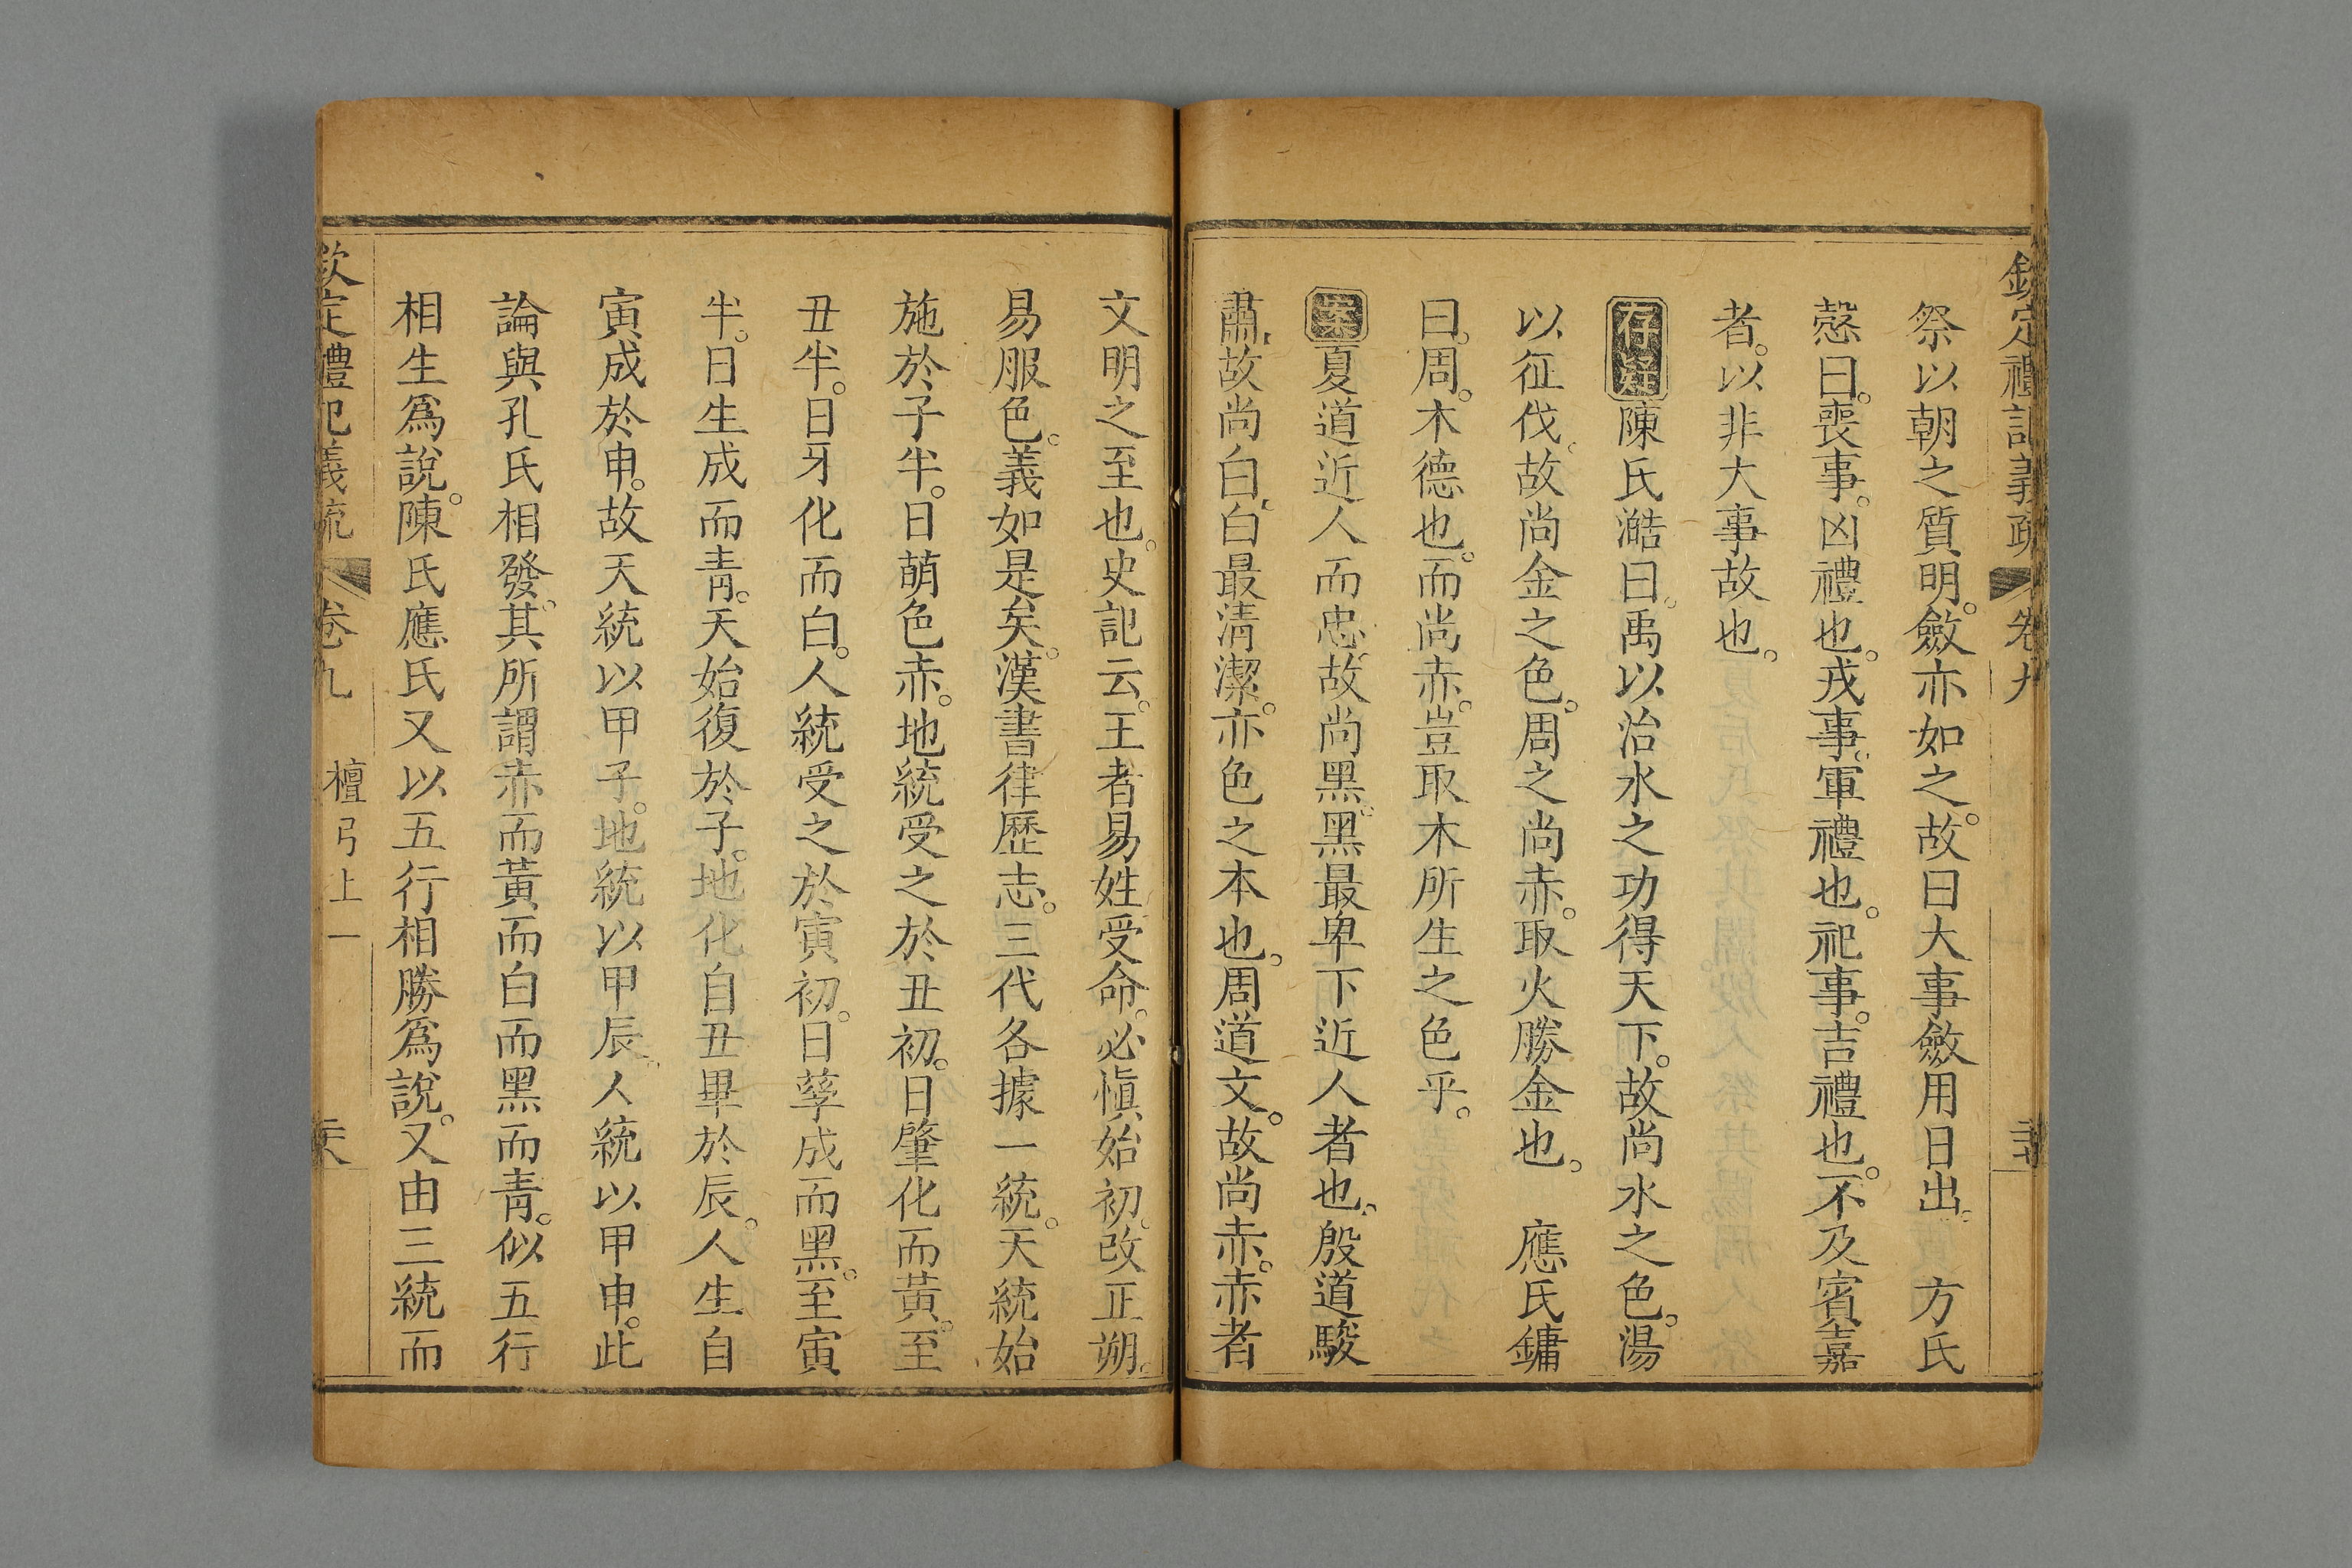 欽定禮記義疏 卷九
祭以朝之質明。斂亦如之。故曰大事斂用日出。 方氏
慤曰。喪事。凶禮也。戎事。軍禮也。祀事。吉禮也。不及賓嘉
者。以非大事故也。
存疑 陳氏澔曰。禹以治水之功得天下。故尚水之色。湯
以征伐。故尚金之色。周之尚赤。取火勝金也。 應氏鏞
曰。周。木德也。而尚赤。豈取木所生之色乎。
案 夏道近人而忠。故尚黑。黑最卑下近人者也。殷道駿
肅。故尚白。白最清潔。亦色之本也。周道文。故尚赤。赤者
文明之至也。史記云。王者易姓受命。必慎始初。改正朔。
易服色。義如是矣。漢書律歷志。三代各據一統。天統始
施於子半。日萌色赤。地統受之於丑初。日肇化而黃。至
丑半。日牙化而白。人統受之於寅初。日孳成而黑。至寅
半。日生成而青。天始復於子。地化自丑畢於辰。人生自
寅成於申。故天統以甲子。地統以甲辰。人統以甲申。此
論與孔氏相發。其所謂赤而黃而白而黑而青。似五行
相生爲說。陳氏應氏又以五行相勝爲說。又由三統而
欽定禮記義疏 卷九 檀弓上一